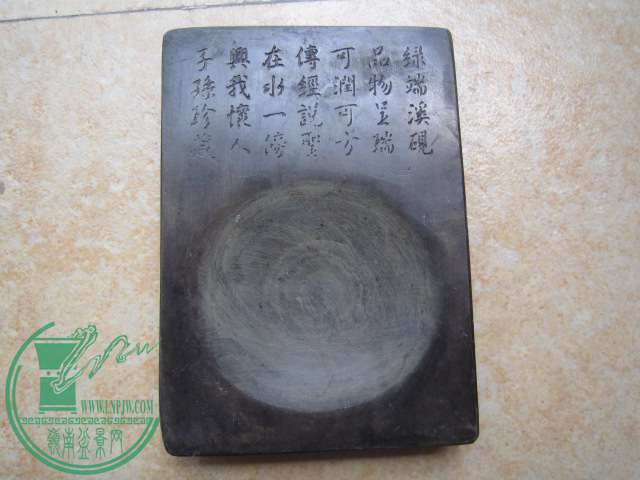 綠端溪硯
品物呈瑞
可潤可方
傳經說聖
在水一傍
興我懷人
子孫珍藏
WWW.LNPJW.COM
嶺南盆景网